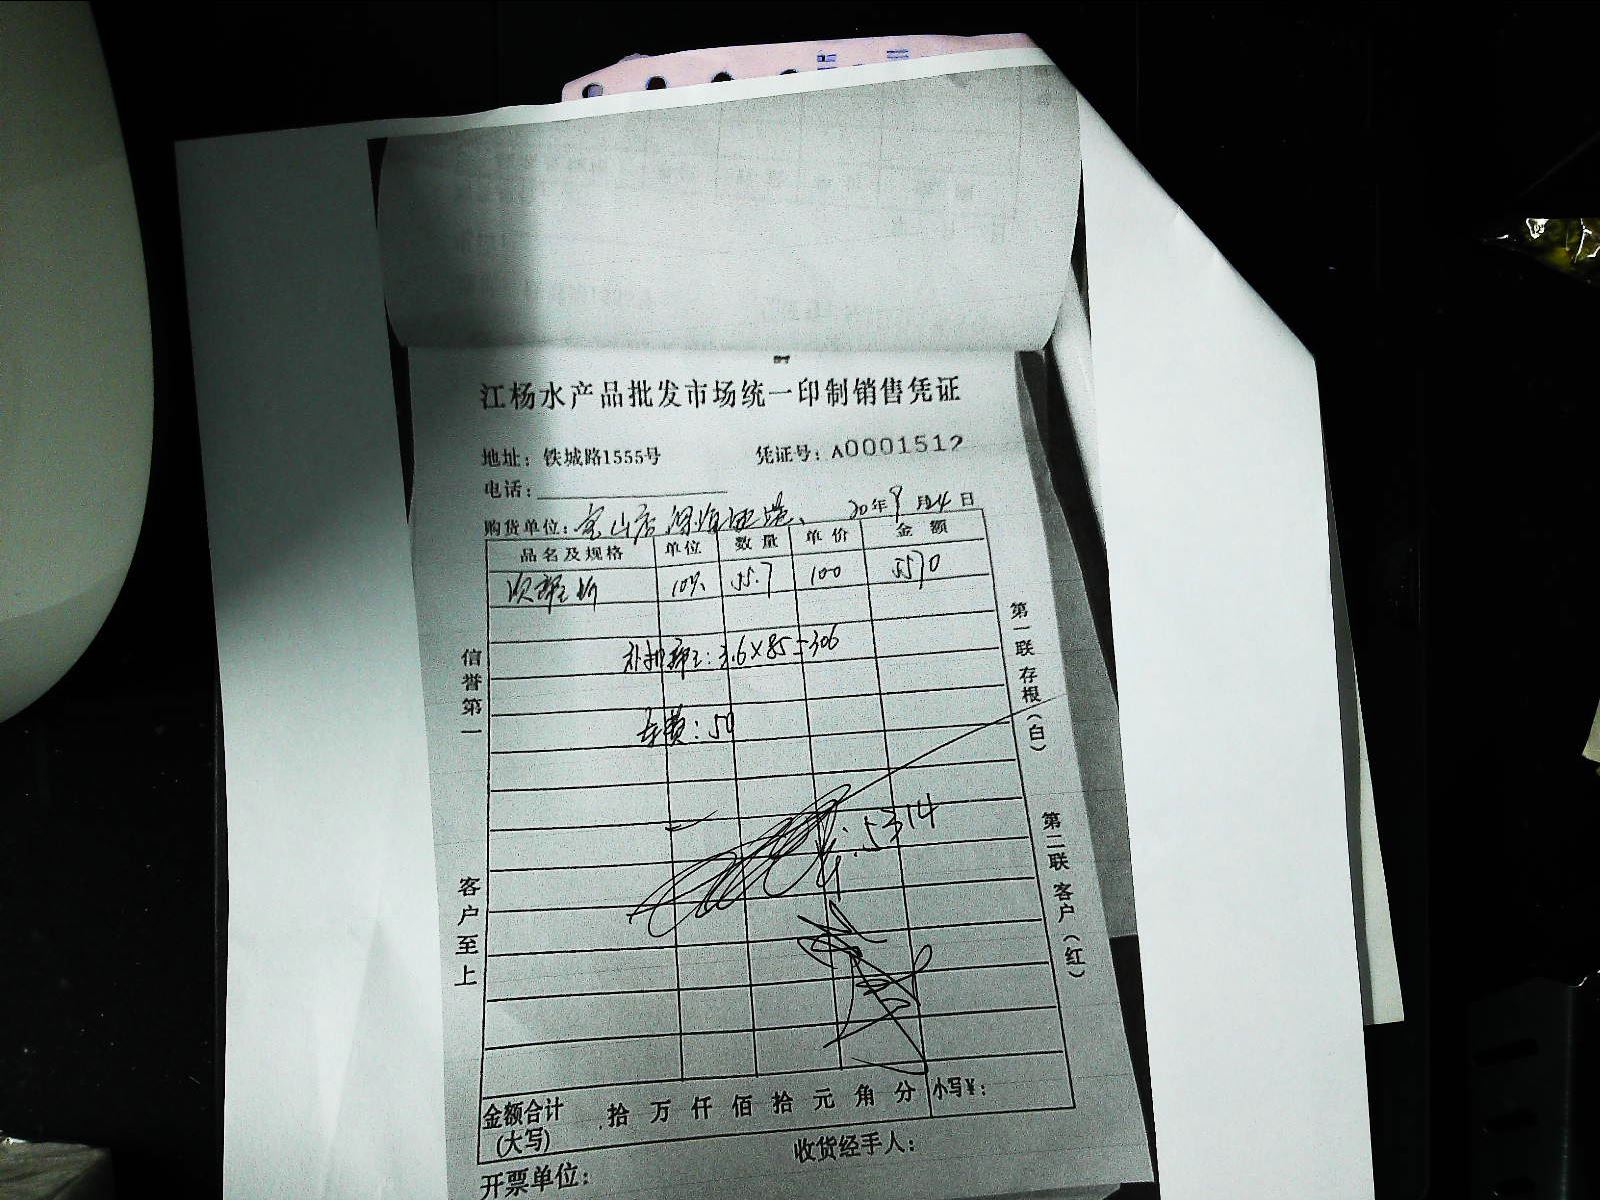 江杨水产品批发市场统一印制销售凭证
地址：铁城路1555号 凭证号：A0001512
电话：
购货单位：宝山店 20年9月24日
品名及规格 单位 数量 单价 金额
55.7 100 5570
3.6×85=306
车费：50
5314
信誉第一
客户至上
第一联 存根（白）
第二联 客户（红）
金额合计(大写) 拾 万 仟 佰 拾 元 角 分 小写￥：
收货经手人：
开票单位：